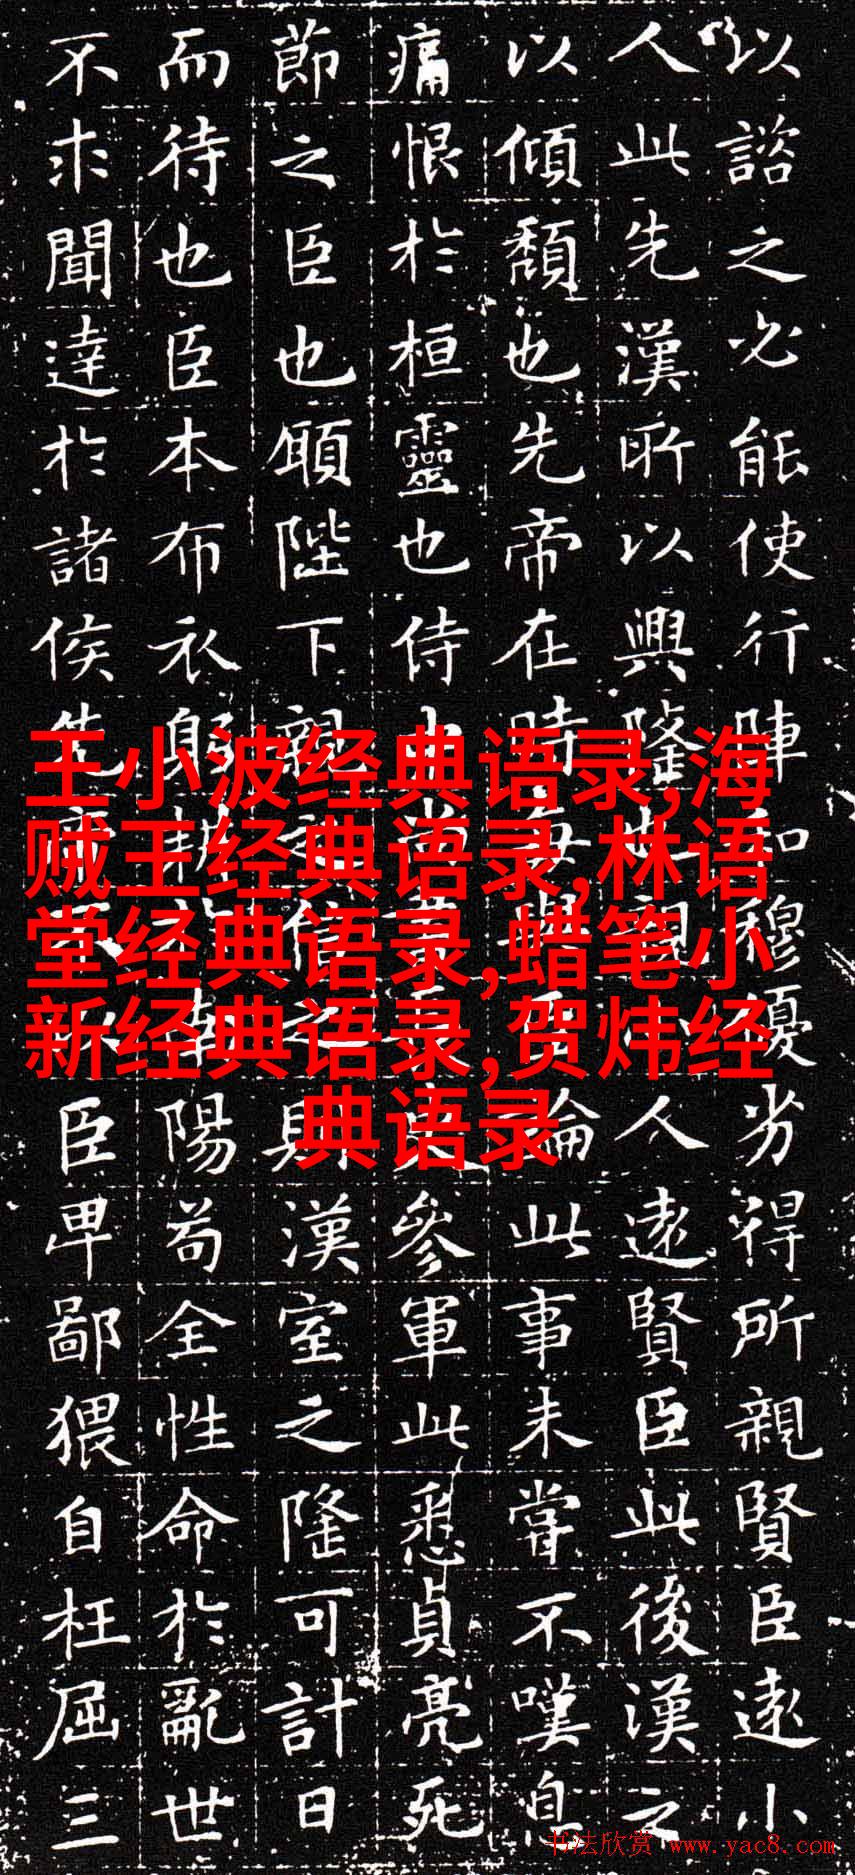 以諮之必能使行陣和穆優劣得所親賢臣遠小
人此先漢所以興隆也親小人遠賢臣此後漢之
以傾頹也先帝在時每與臣論此事未嘗不嘆息
痛恨於桓靈也侍中尚書長史參軍此悉貞亮死
節之臣也願陛下親之信之則漢室之隆可計日
而待也臣本布衣躬耕於南陽苟全性命於亂世
不求聞達於諸侯先帝不以臣卑鄙猥自枉屈三
王小波经典语录,海
贼王经典语录,林语
堂经典语录,蜡笔小
新经典语录,贺炜经
典语录
书法欣赏 www.yac8.com